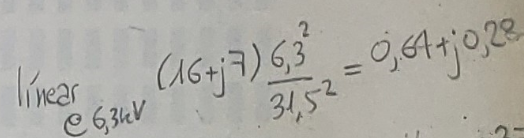 línear @ 6,3kV (16+j7) 6,3² / 31,5² = 0,64+j0,28